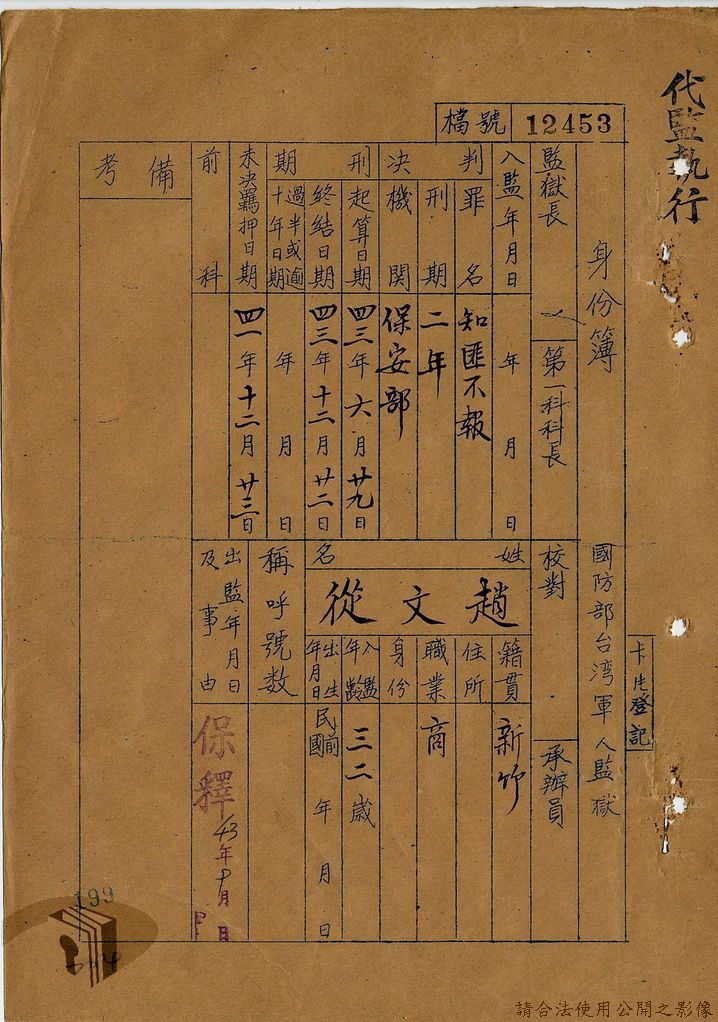 代監執行
檔號 12453
身份簿
國防部台湾軍人監獄
卡片登記
監獄長
第一科科長
校對
承辦員
入監年月日 年 月 日
判決
罪名 知匪不報
刑期 二年
機関 保安部
刑期
起算日期 四三年六月廿九日
終結日期 四三年十二月廿二日
過半或逾十年日期 年 月 日
未決羈押日期 四一年十二月廿三日
前科
備考
姓名
趙文從
籍貫 新竹
住所
職業 商
身份
入監年齡 三二歲
出生年月日 民國前 年 月 日
稱呼號数
出監年月日及事由
保釋
43年 月 日
199
請合法使用公開之影像